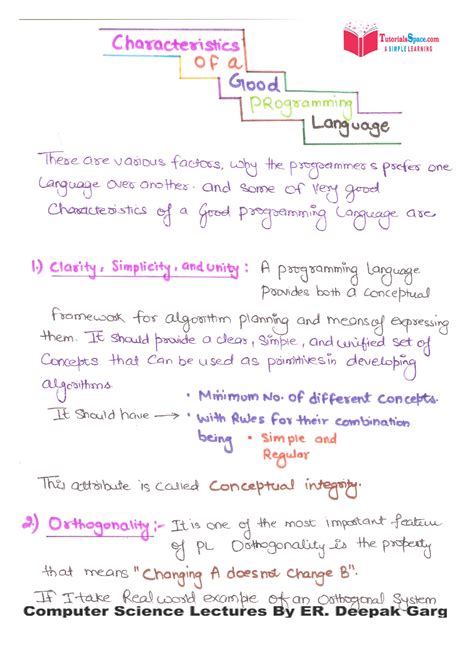 TutorialsSpace.com
A SIMPLE LEARNING
Characteristics
OF a
Good
PROgramming
Language
There are various factors, why the programmers prefer one
language over another. and some of very good
Characteristics of a Good programming Language are
1.) Clarity, Simplicity, and unity: A programming language
provides both a conceptual
framework for algorithm planning and means of expressing
them. It should provide a clear, simple, and unified set of
Concepts that can be used as primitives in developing
algorithms.
• Minimum No. of different concepts.
It Should have → • with Rules for their combination
being • Simple and
Regular
This attribute is called Conceptual integrity.
2.) Orthogonality:- It is one of the most important feature
of PL Orthogonality is the property
that means "Changing A does not change B".
If I take Real word example of an Orthogonal System
Computer Science Lectures By ER. Deepak Garg